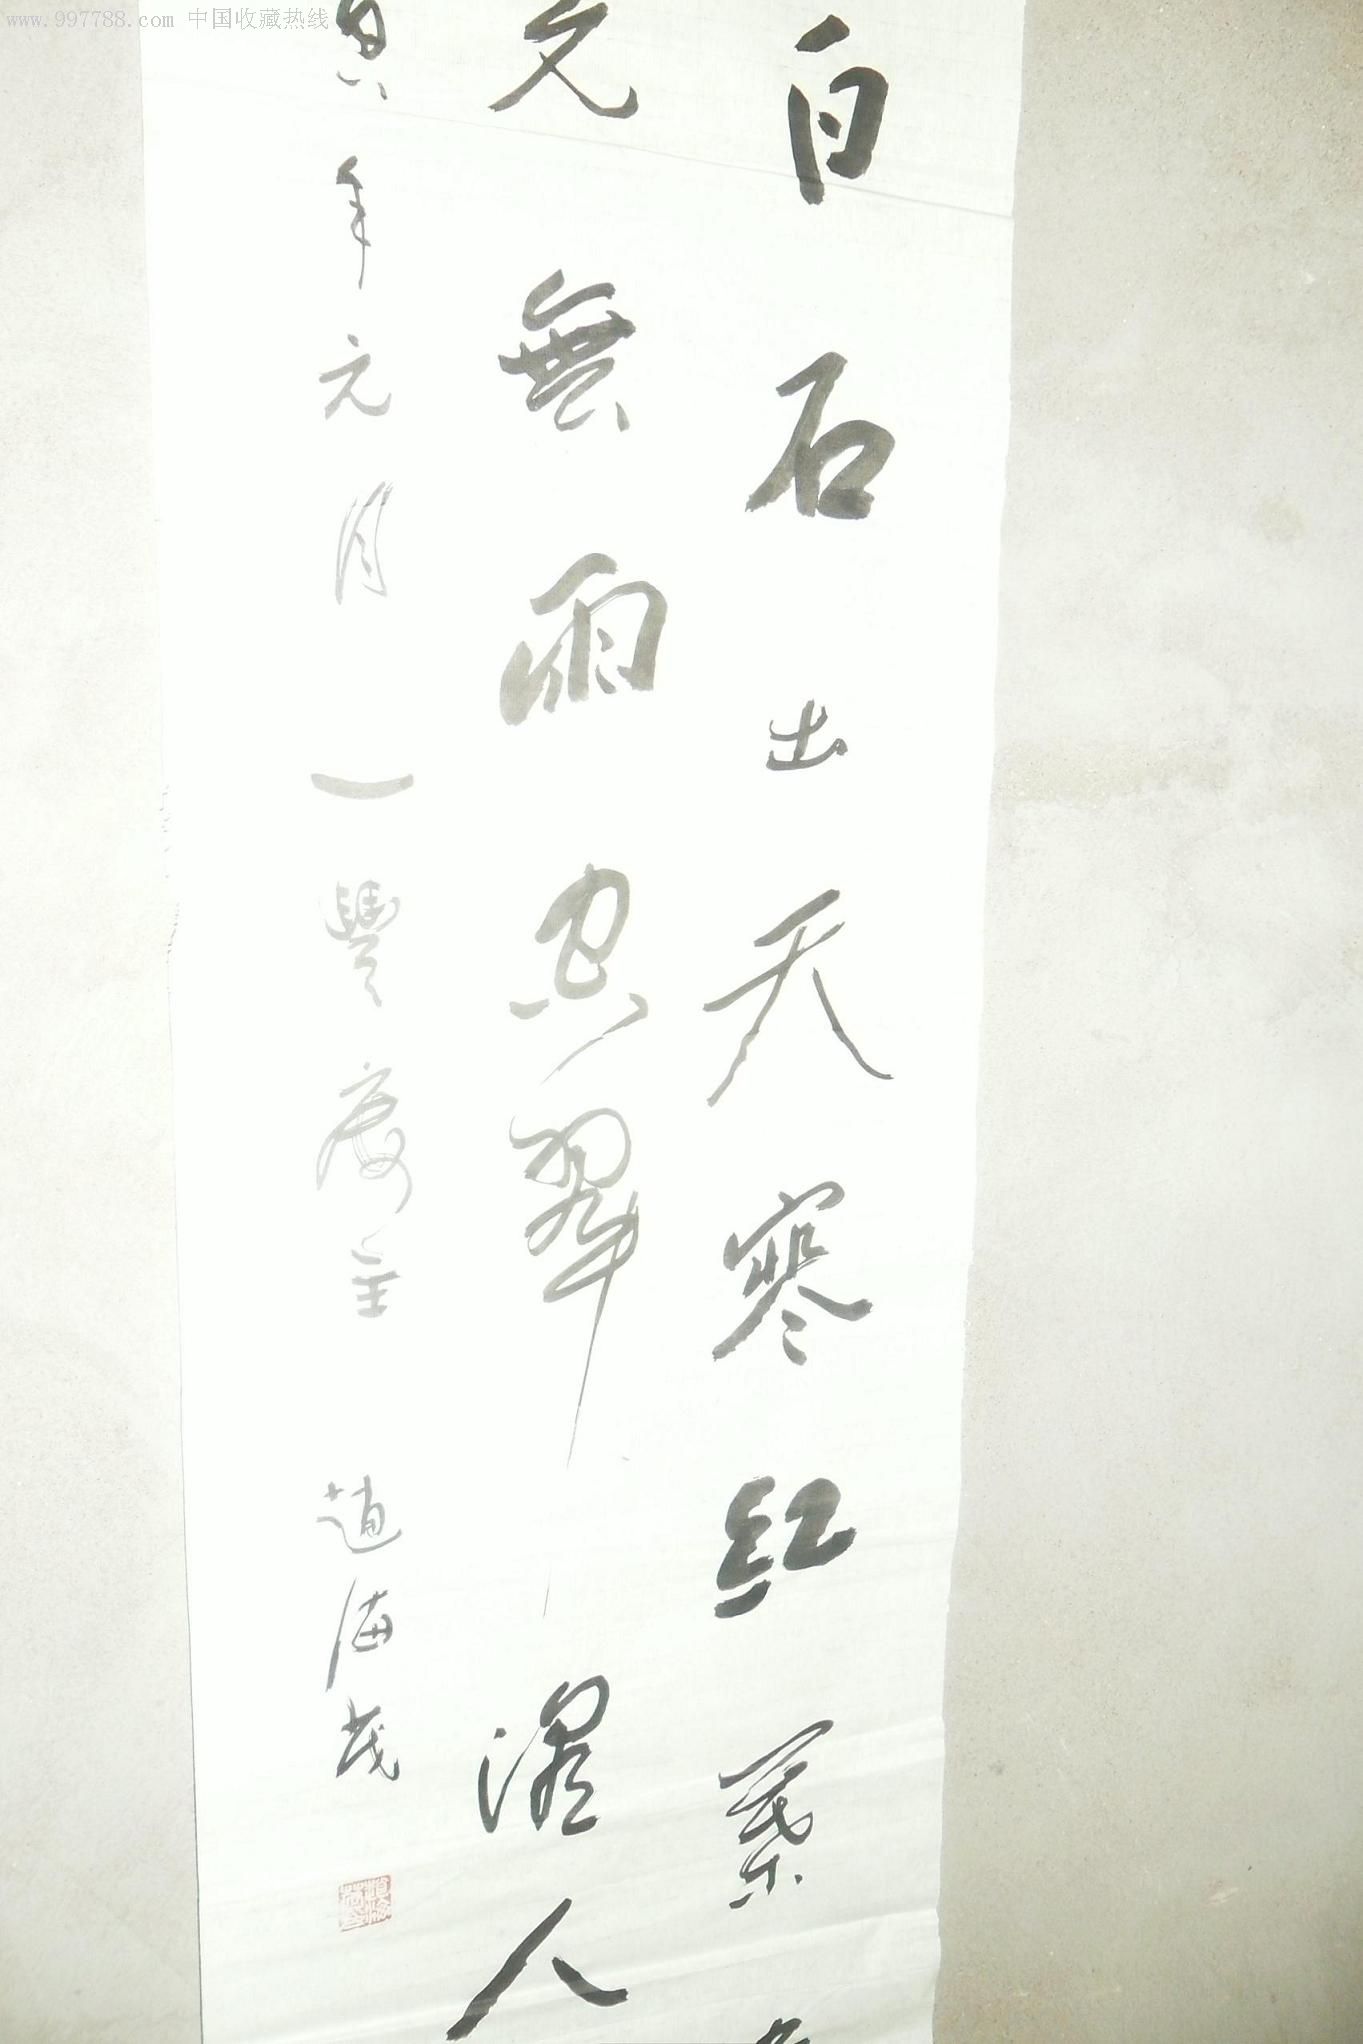 www.997788.com 中国收藏热线
白石出天寒红葉
元無雨空翠濕人
寅年元月一豐慶主 趙海茂